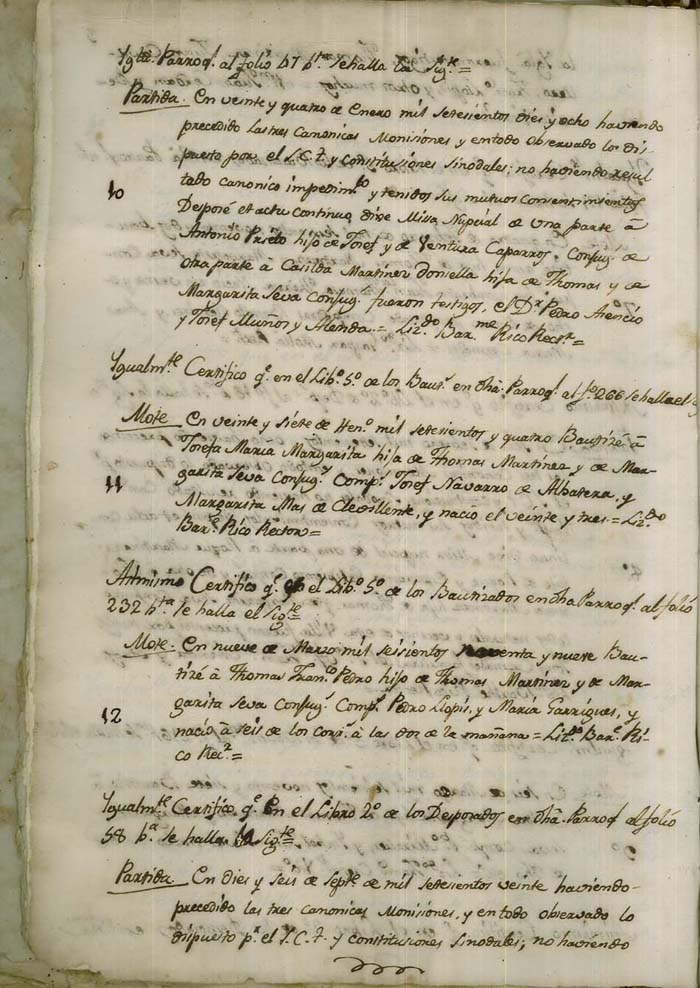 Parroq.l al folio 47 b.ta se halla la sig.te =
Partida. En veinte y quatro de Enero mil setesientos dies y ocho haviendo
precedido las tres canonicas Monisiones y en todo observado lo dis-
puesto por el S.C.T. y constitusiones sinodales; no haviendo resul
10 tado canonico impedim.to y tenidos sus mutuos consentimientos
Desposé et actu continuo dixe Missa Nupcial de una parte â
Antonio Prieto hijo de Josef y de Ventura Caparros. Conjug.s de
otra parte â Casilda Martinez Donsella hija de Thomas y de
Margarita Seva Conjug.s fueron testigos, el D.r Pedro Asencio
y Josef Muños y Alenda. = Liz.do Bar.me Rico Rect.r =
Igualm.te Certifico q.e en el Lib.o 5.o de los Baut.s en dhâ. Parroq.l al f.o 266 se halla el
Mote En veinte y siete de Hen.o mil setesientos y quatro Bautizé â
Josefa Maria Margarita hija de Thomas Martinez y de Mar-
11 garita Seva Conjug.s Comp.s Josef Navarro de Albatera, y
Margarita Mas de Crevillente, y nacio el veinte y tres = Liz.do
Bar.e Rico Rector =
Asimismo Certifico q.e en el Lib.o 5.o de los Bautizados en dha Parroq.l al folio
232 b.ta se halla el sig.te
Mote. En nueve de Marzo mil seisientos noventa y nueve Bau-
tizé â Thomas Fran.co Pedro hijo de Thomas Martinez y de Mar-
garita Seva Conjug.s Comp.s Pedro Llopis, y Maria Garrigues, y
12 nacio â seis de los corr.s â las dos de la mañana = Liz.do Bar.e Ri-
co Rec.r =
Igualm.te Certifico q.e en el Libro 2.o de los Desposados en dhâ. Parroq.l al folio
58 b.a se halla la sig.te
Partida En dies y seis de Sept.e de mil setesientos veinte haviendo
precedido las tres canonicas Monisiones, y en todo observado lo
dispuesto p.r el S.C.T. y constitusiones sinodales; no haviendo